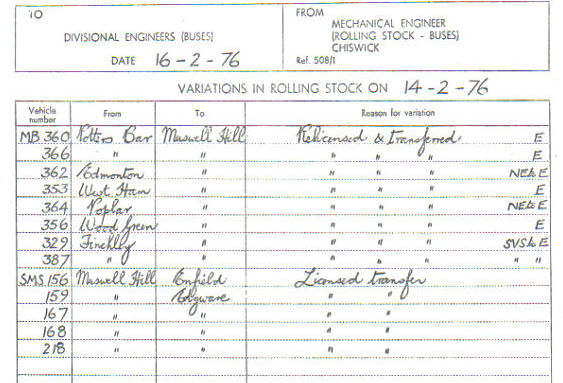 TO
DIVISIONAL ENGINEERS (BUSES)
DATE 16-2-76
FROM
MECHANICAL ENGINEER
(ROLLING STOCK - BUSES)
CHISWICK
Ref. 508/1
VARIATIONS IN ROLLING STOCK ON 14-2-76
Vehicle number From To Reason for variation
MB 360 Potters Bar Muswell Hill Relicensed & Transferred E
366 " " " " " E
362 Edmonton " " " " NE to E
353 West Ham " " " " E
364 Poplar " " " " NE to E
356 Wood Green " " " " E
329 Finchley " " " " SVS to E
387 " " " " " " "
SMS 156 Muswell Hill Enfield Licensed transfer
159 " Edgware " "
167 " " " "
168 " " " "
218 " " " "